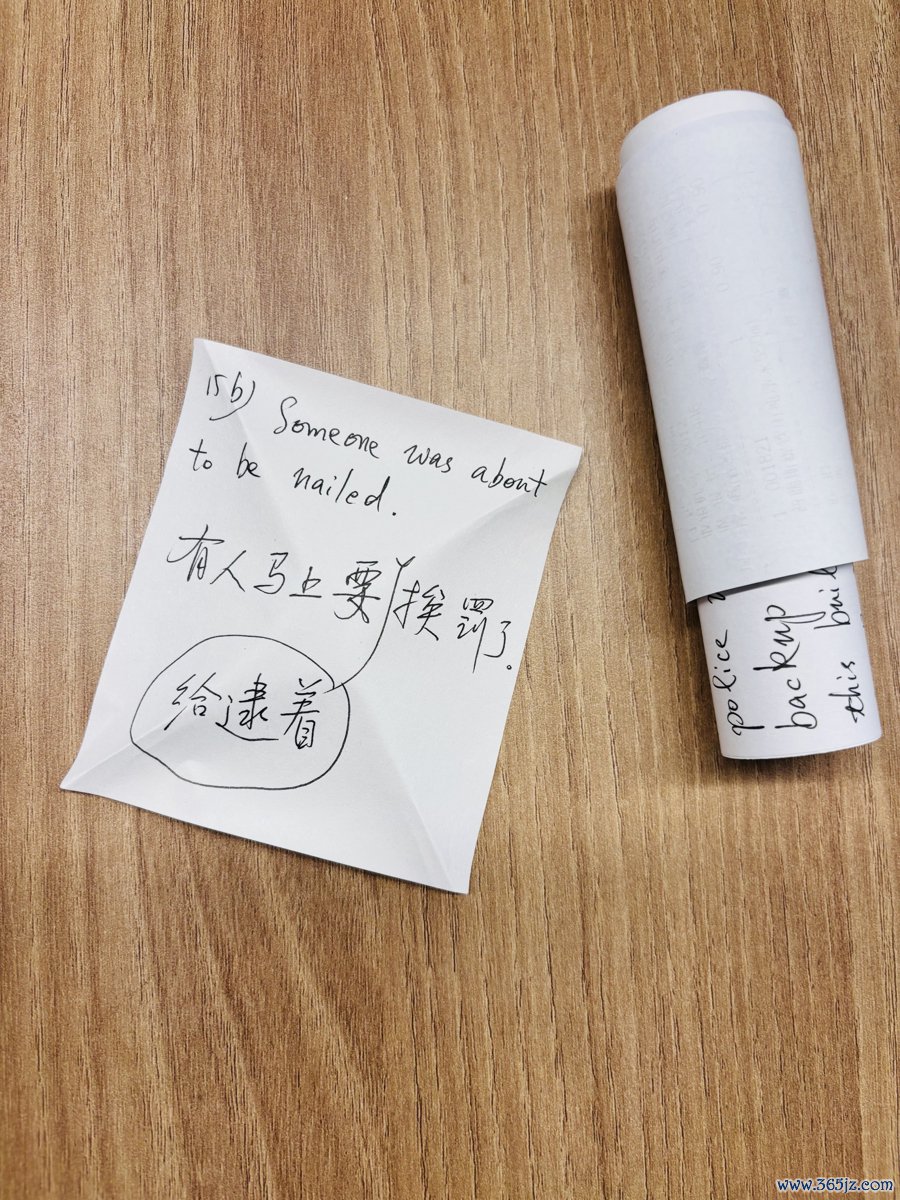 15b) Someone was about
to be nailed.
有人马上要挨罚了.
给逮着
police
backup
this
www.365jz.com